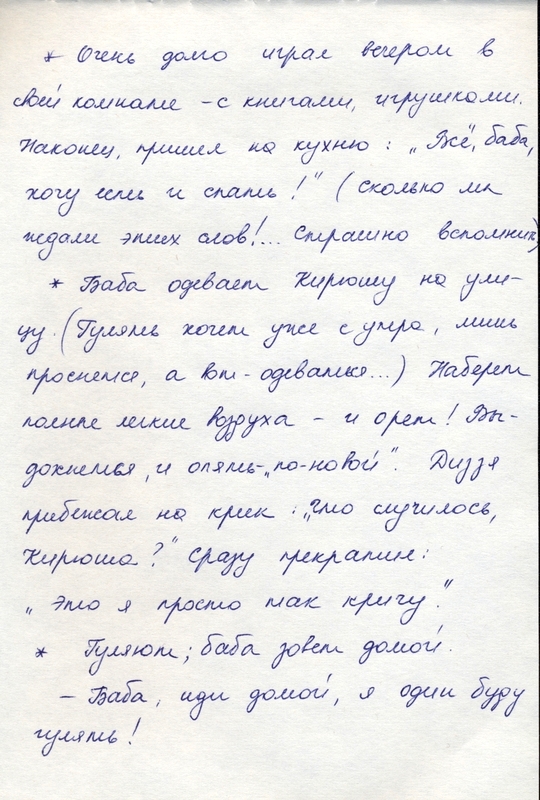 * Очень долго играл вечером в
своей комнате – с книгами, игрушками.
Наконец, пришел на кухню: „Всё, баба,
хочу есть и спать!" (сколько мы
ждали этих слов!... Страшно вспомнить)
* Баба одевает Кирюшу на ули-
цу. (Гулять хочет уже с утра, лишь
проснется, а вот - одеваться...) Наберет
полные легкие воздуха – и орет! Вы-
дохнется, и опять - „по-новой". Диззя
прибежал на крик: „Что случилось,
Кирюша?" Сразу прекратил:
„Это я просто так кричу."
* Гуляют; баба зовет домой.
– Баба, иди домой, я один буду
гулять!